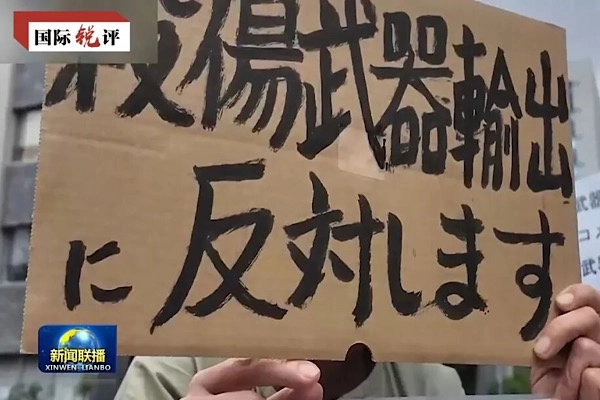 国际锐评
殺傷武器輸出
に反対します
武器
コメ
武
新闻联播
XINWEN LIANBO